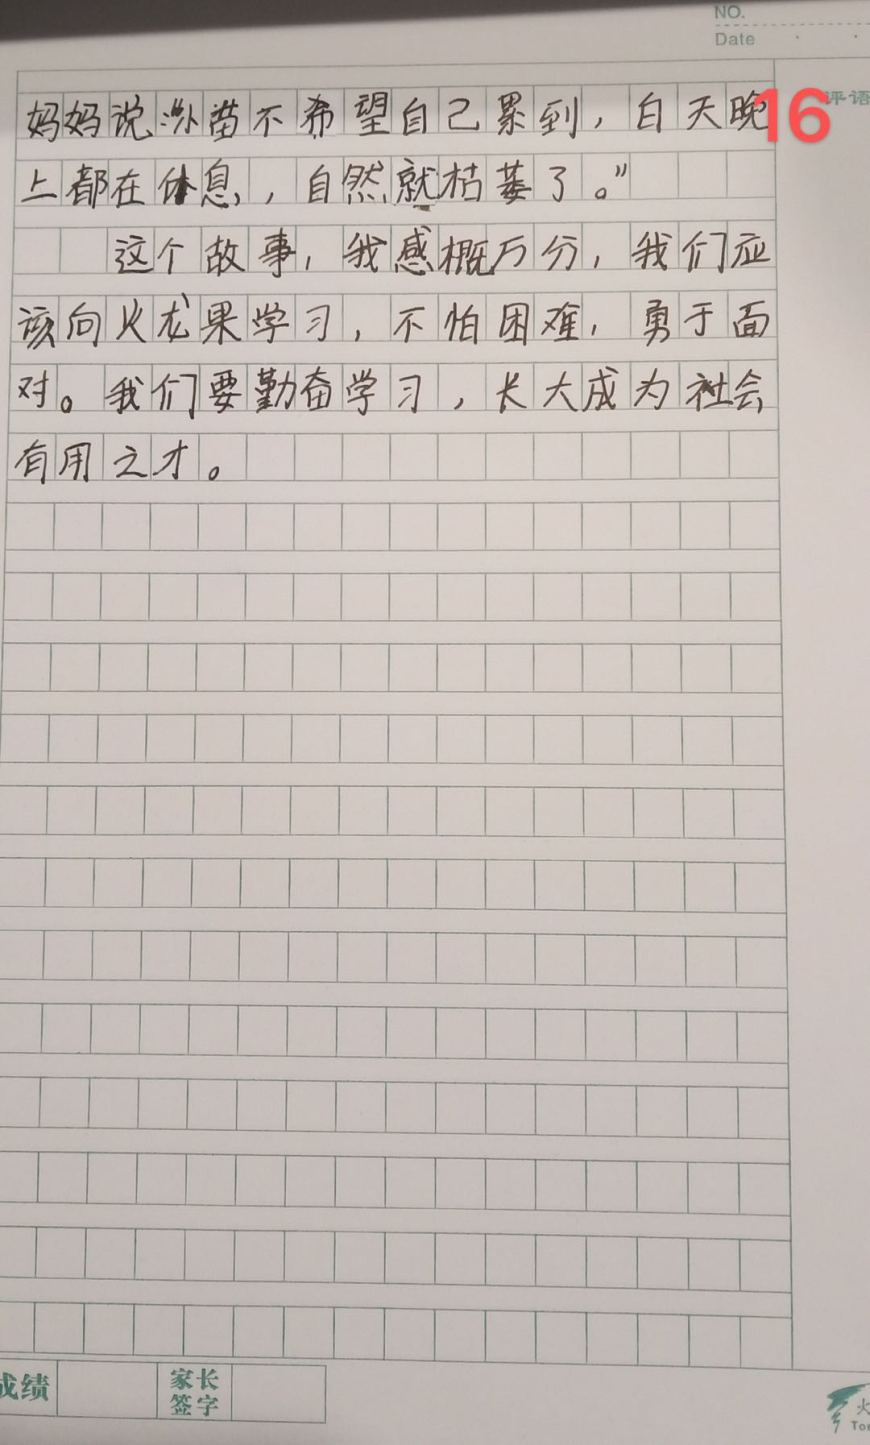 NO.
Date
评语
16
妈妈说:孙苗不希望自己累到，白天晚
上都在休息，，自然就枯萎了。”
这个故事，我感概万分，我们应
该向火龙果学习，不怕困难，勇于面
对。我们要勤奋学习，长大成为社会
有用之才。
成绩
家长
签字
火